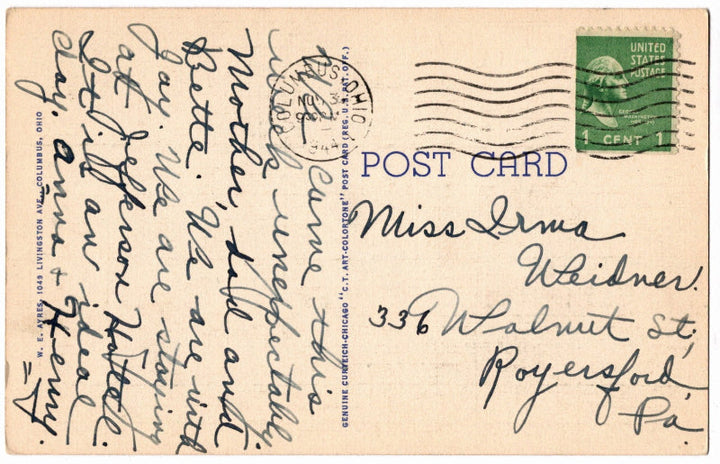 We came this
week unexpectedly
Mother, dad and
Bette. We are with
gar. We are staying
at Jefferson Hotel.
It is an ideal
day. Anna + Henry.
W. E. AYRES, 1049 LIVINGSTON AVE., COLUMBUS, OHIO
GENUINE CURTEICH-CHICAGO "C.T. ART-COLORTONE" POST CARD (REG. U.S. PAT. OFF.)
COLUMBUS, OHIO
NOV 3
POST CARD
UNITED
STATES
POSTAGE
GEORGE
WASHINGTON
1 CENT 1
Miss Irma
Weidner.
336 Walnut St;
Royersford,
Pa.